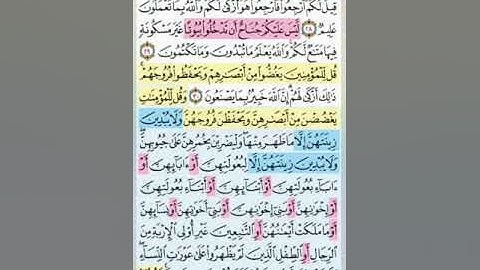 قِيلَ لَكُمُ ٱرْجِعُوا۟ فَٱرْجِعُوا۟ هُوَ أَزْكَىٰ لَكُمْ وَٱللَّهُ بِمَا تَعْمَلُونَ
عَلِيمٌ ٢٨ لَّيْسَ عَلَيْكُمْ جُنَاحٌ أَن تَدْخُلُوا۟ بُيُوتًا غَيْرَ مَسْكُونَةٍ
فِيهَا مَتَٰعٌ لَّكُمْ وَٱللَّهُ يَعْلَمُ مَا تُبْدُونَ وَمَا تَكْتُمُونَ ٢٩
قُل لِّلْمُؤْمِنِينَ يَغُضُّوا۟ مِنْ أَبْصَٰرِهِمْ وَيَحْفَظُوا۟ فُرُوجَهُمْ
ذَٰلِكَ أَزْكَىٰ لَهُمْ إِنَّ ٱللَّهَ خَبِيرٌۢ بِمَا يَصْنَعُونَ ٣٠ وَقُل لِّلْمُؤْمِنَٰتِ
يَغْضُضْنَ مِنْ أَبْصَٰرِهِنَّ وَيَحْفَظْنَ فُرُوجَهُنَّ وَلَا يُبْدِينَ
زِينَتَهُنَّ إِلَّا مَا ظَهَرَ مِنْهَا وَلْيَضْرِبْنَ بِخُمُرِهِنَّ عَلَىٰ جُيُوبِهِنَّ
وَلَا يُبْدِينَ زِينَتَهُنَّ إِلَّا لِبُعُولَتِهِنَّ أَوْ ءَابَآئِهِنَّ أَوْ
ءَابَآءِ بُعُولَتِهِنَّ أَوْ أَبْنَآئِهِنَّ أَوْ أَبْنَآءِ بُعُولَتِهِنَّ
أَوْ إِخْوَٰنِهِنَّ أَوْ بَنِىٓ إِخْوَٰنِهِنَّ أَوْ بَنِىٓ أَخَوَٰتِهِنَّ أَوْ نِسَآئِهِنَّ
أَوْ مَا مَلَكَتْ أَيْمَٰنُهُنَّ أَوِ ٱلتَّٰبِعِينَ غَيْرِ أُو۟لِى ٱلْإِرْبَةِ مِنَ
ٱلرِّجَالِ أَوِ ٱلطِّفْلِ ٱلَّذِينَ لَمْ يَظْهَرُوا۟ عَلَىٰ عَوْرَٰتِ ٱلنِّسَآءِ